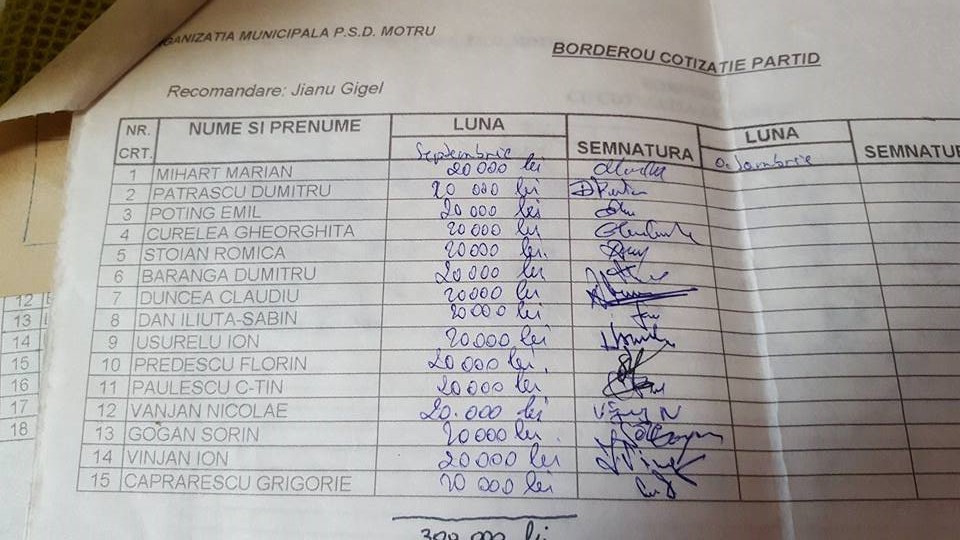 GANIZATIA MUNICIPALA P.S.D. MOTRU
BORDEROU COTIZATIE PARTID
Recomandare: Jianu Gigel
NR. CRT. NUME SI PRENUME LUNA SEMNATURA LUNA SEMNATU
Septembrie
1 MIHART MARIAN 20 000 lei
2 PATRASCU DUMITRU 20 000 lei
3 POTING EMIL 20 000 lei
4 CURELEA GHEORGHITA 20 000 lei
5 STOIAN ROMICA 20 000 lei.
6 BARANGA DUMITRU 20 000 lei
7 DUNCEA CLAUDIU 20 000 lei
8 DAN ILIUTA-SABIN 20 000 lei
9 USURELU ION 20 000 lei
10 PREDESCU FLORIN 20 000 lei.
11 PAULESCU C-TIN 20 000 lei
12 VANJAN NICOLAE 20.000 lei
13 GOGAN SORIN 20 000 lei.
14 VINJAN ION 20 000 lei
15 CAPRARESCU GRIGORIE 20 000 lei
300 000 lei
12
13
14
15
16
17
18